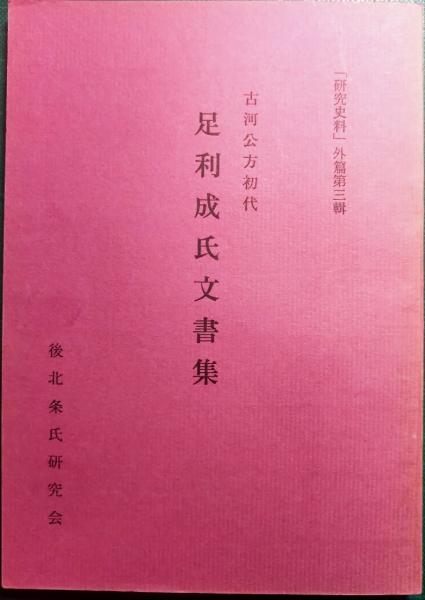 「研究史料」外篇第三輯
古河公方初代
足利成氏文書集
後北条氏研究会